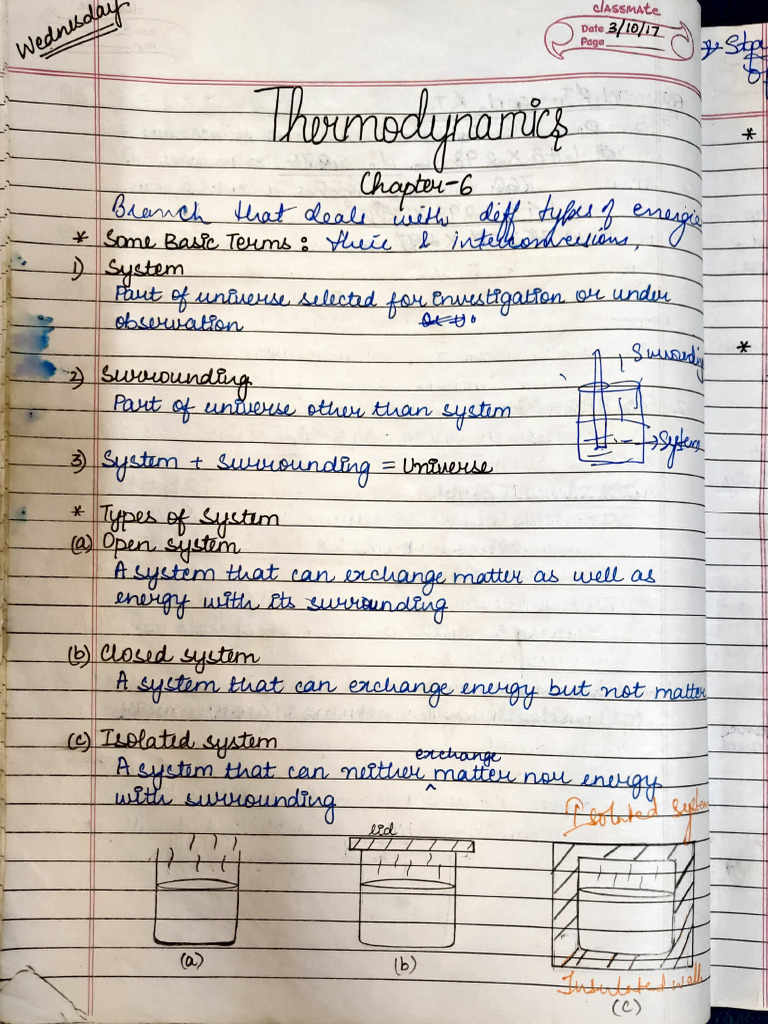 Wednesday
classmate
Date 3/10/17
Page
Thermodynamics
Chapter-6
Branch that deals with diff types of energie
* Some Basic Terms: their & interconversions,
1) System
Part of universe selected for investigation or under
observation
Surrounding
2) Surrounding
Part of universe other than system
→System
3) System + Surrounding = Universe
* Types of System
(a) Open system
A system that can exchange matter as well as
energy with its surrounding
(b) Closed system
A system that can exchange energy but not matter
(c) Isolated system
exchange
A system that can neither ^ matter nor energy
with surrounding
Isolated system
lid
(a)
(b)
Insulated wall
(c)
*
*